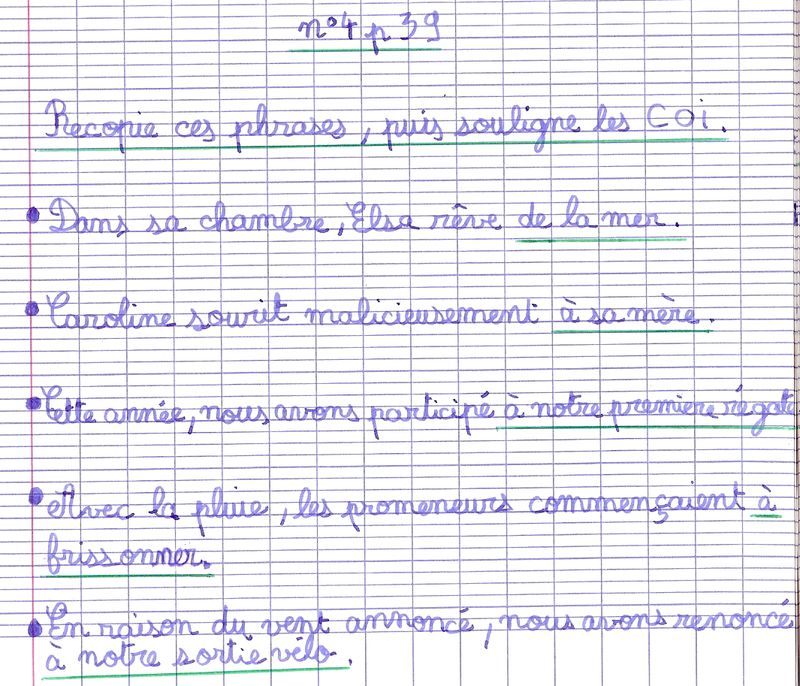 n°4 p 39
Recopie ces phrases, puis souligne les COi.
• Dans sa chambre, Elsa rêve de la mer.
• Caroline sourit malicieusement à sa mère.
• Cette année, nous avons participé à notre premiere régate
• Avec la pluie, les promeneurs commençaient à
frissonner.
• En raison du vent annoncé, nous avons renoncé
à notre sortie vélo.